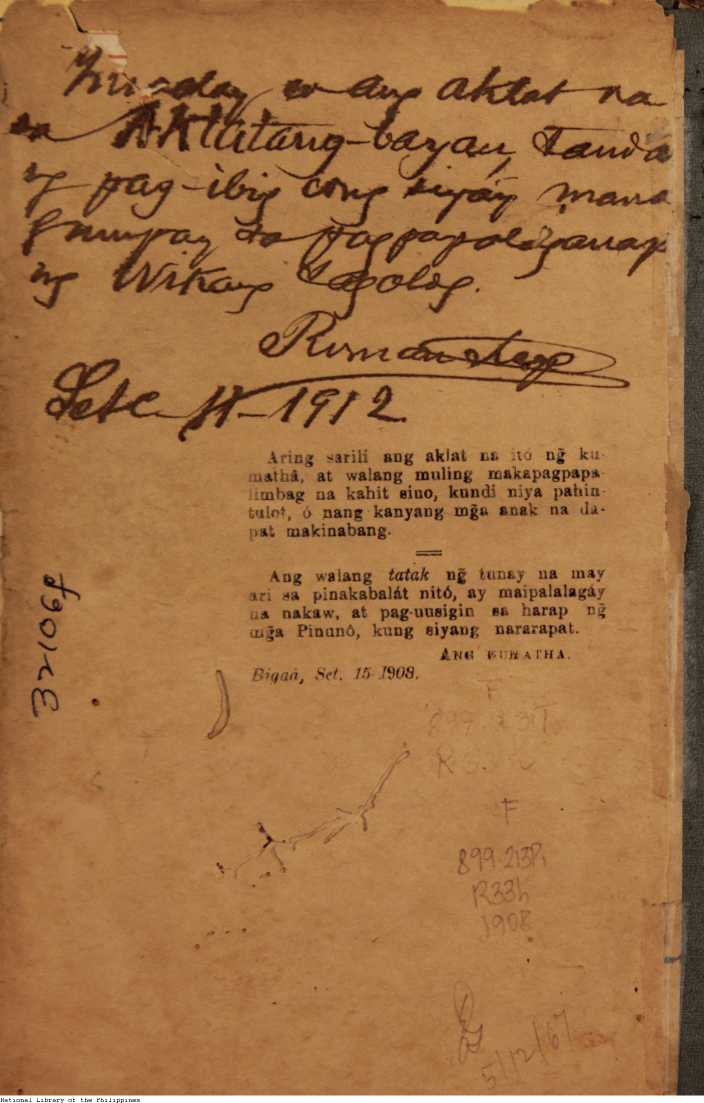 ang aklat na
sa Aklatang-bayan, tanda
ng pag-ibig cong siyáy mana
sa pagpapalaganap
ng Wikang Tagalog.
Roman Reyes
Sete 11-1912
Aring sarili ang aklat na itó ng̃ ku-
mathâ, at walang muling makapagpapa-
limbag na kahit sino, kundi niya pahin-
tulot, ó nang kanyang mg̃a anak na da-
pat makinabang.
Ang walang tatak ng̃ tunay na may
ari sa pinakabalát nitó, ay maipalalagáy
na nakaw, at pag-uusigin sa harap ng̃
mg̃a Pinunô, kung siyang nararapat.
ANG KUMATHA.
Bigaá, Set. 15-1908.
32106f
F
R33k
F
899.213R
R33h
1908
5/12/67
National Library of the Philippines